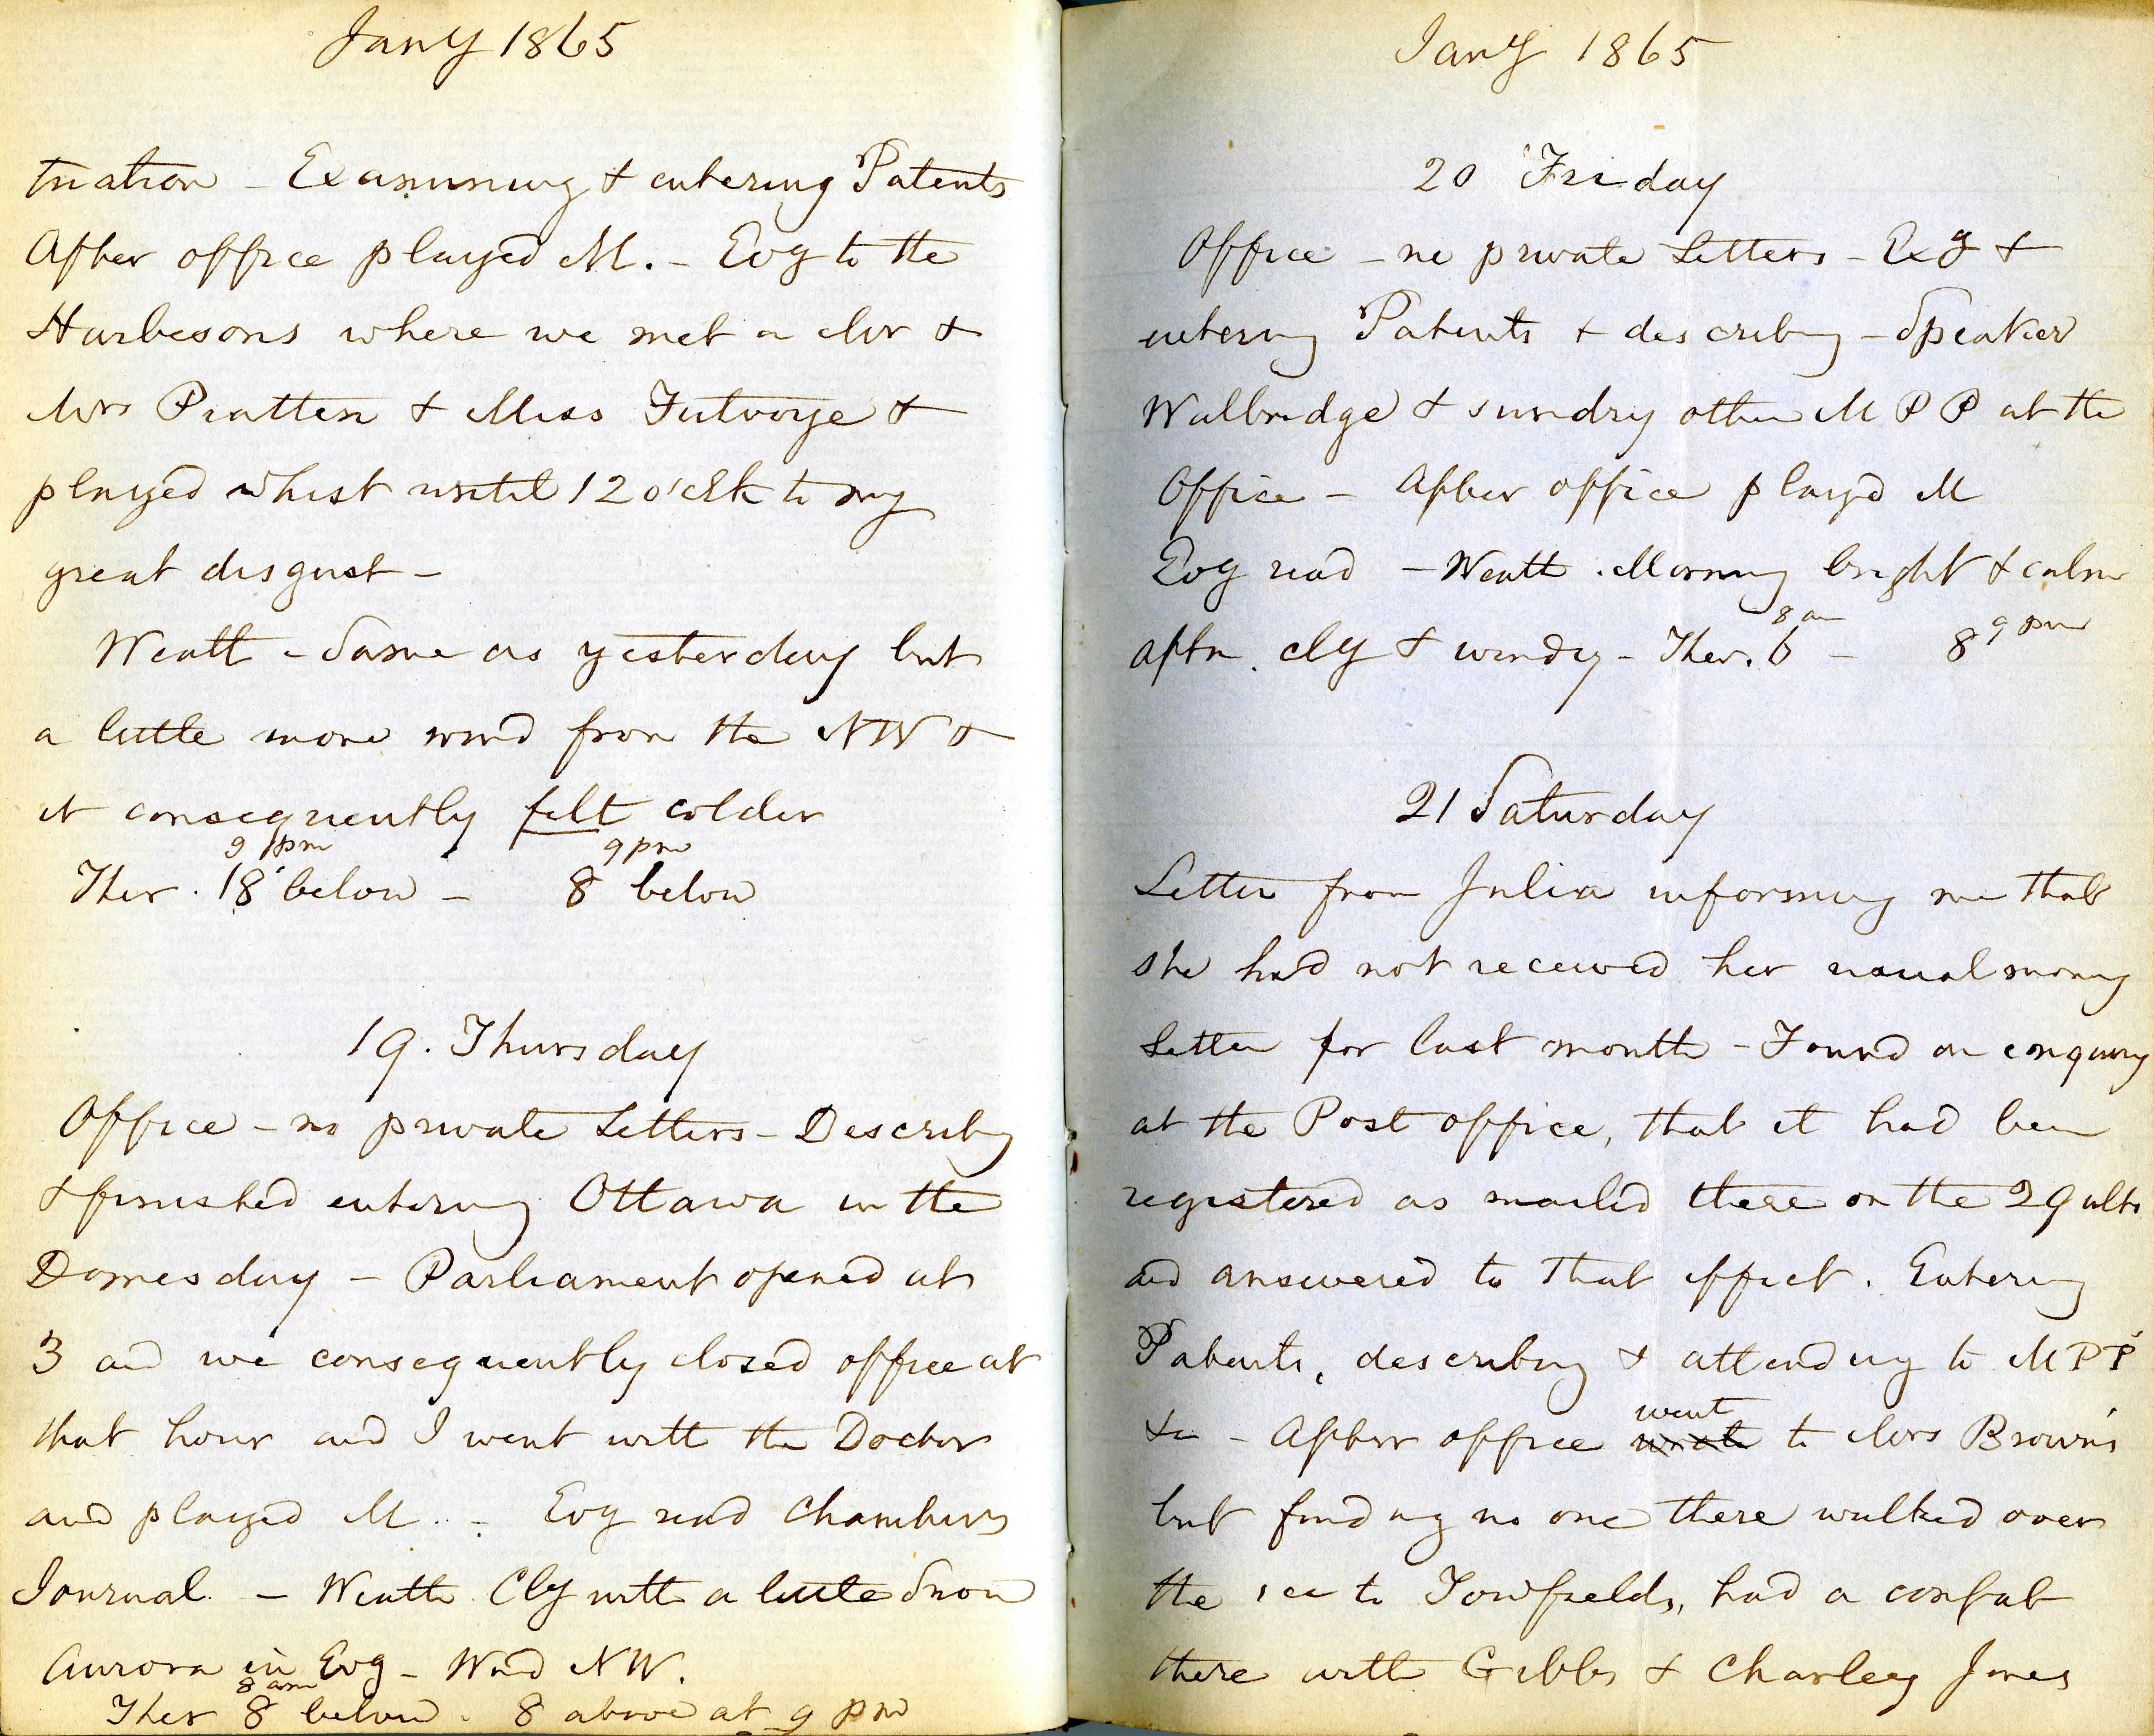 Jany 1865
tuation - Examining & entering Patents
After office played M. - Evg to the
Harbesons where we met a Mr &
Mrs Pratten & Miss Futvoye &
played whist until 12 o'clk to my
great disgust -
Weath - Same as yesterday but
a little more wind from the NW &
it consequently felt colder
9 pm 9 pm
Ther. 18 below - 8 below
19. Thursday
Office - no private Letters - Describg
& finished entering Ottawa in the
Domesday - Parliament opened at
3 and we consequently closed office at
that hour and I went with the Doctor
and played M. - Evg read Chambers
Journal. - Weath Cly with a little Snow
Aurora in Evg - Wind NW.
8 am
Ther 8 below. 8 above at 9 pm
Jany 1865
20 Friday
Office - no private Letters - Exg &
entering Patents & describing - Speaker
Wallbridge & sundry other M P P at the
Office - After office played M
Evg read - Weath. Morning bright & calm
8 am 9 pm
aftn. cly & windy - Ther. 6 - 8
21 Saturday
Letter from Julia informing me that
she had not received her usual money
Letter for last month - Found on enquiry
at the Post office, that it had been
registered as mailed there on the 29 ulto
and answered to that effect. Entering
Patents, describing & attending to MPP
went
&c - After office wrote to Mrs Brown's
but finding no one there walked over
the ice to Towfields, had a confab
there with Gibbs & Charley Jones